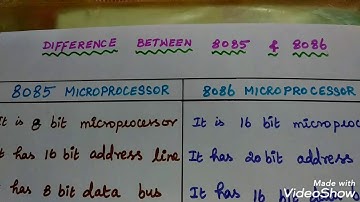 DIFFERENCE BETWEEN 8085 & 8086
8085 MICROPROCESSOR
8086 MICROPROCESSOR
It is 8 bit microprocessor
It is 16 bit microproc
It has 16 bit address line
It has 20 bit address
has 8 bit data bus
It has 16 bit
Made with
VideoShow